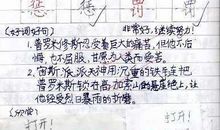 惩 惩 罚 罚
(好词好句) 非常好,继续努力!
1. 普罗米修斯忍受着巨大的痛苦,但他不后
悔,也不屈服,甘愿为人类而受苦。
2. 宙斯派火神用沉重的铁链把
普罗米修斯锁在高加索山的悬崖上,让
他经受烈日暴雨的折磨。
打开! 打开!